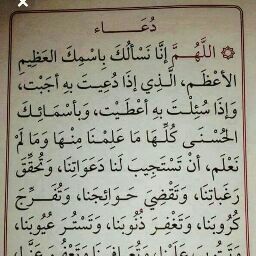 دُعَاء
اللَّهُمَّ إِنَّا نَسْأَلُكَ بِاسْمِكَ العَظِيمِ
الأَعْظَمِ، الَّذِي إِذَا دُعِيتَ بِهِ أَجَبْتَ،
وَإِذَا سُئِلْتَ بِهِ أَعْطَيْتَ، وَبِأَسْمَائِكَ
الحُسْنَى كُلِّهَا مَا عَلِمْنَا مِنْهَا وَمَا لَمْ
نَعْلَم، أَنْ تَسْتَجِيبَ لَنَا دَعَوَاتِنَا، وَتُحَقِّقَ
رَغَبَاتِنَا، وَتَقْضِيَ حَوَائِجَنَا، وَتُفَرِّجَ
كُرُوبَنَا، وَتَغْفِرَ ذُنُوبَنَا، وَتَسْتُرَ عُيُوبَنَا،
وَتَتُوبَ عَلَيْنَا، وَتُعَافِيَنَا وَتَعْفُوَ عَنَّا،